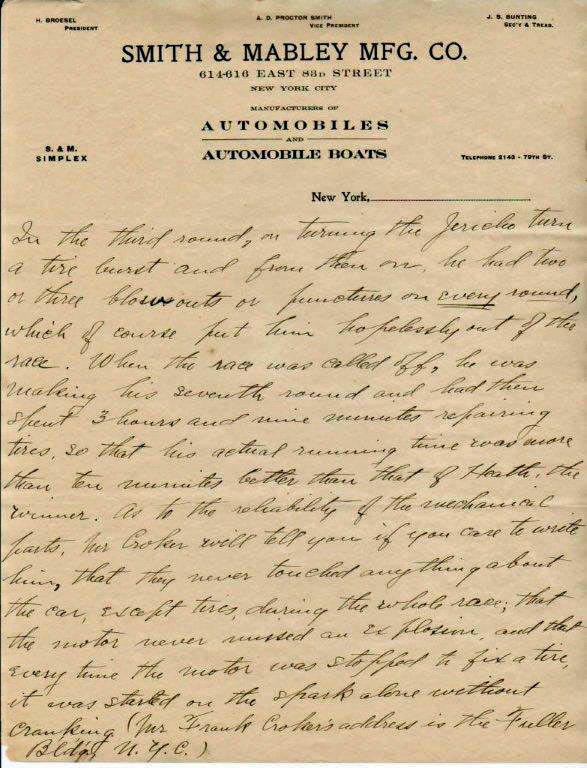 H. BROESEL
PRESIDENT
A. D. PROCTOR SMITH
VICE PRESIDENT
J. S. BUNTING
SEC'Y & TREAS.
SMITH & MABLEY MFG. CO.
614-616 EAST 83D STREET
NEW YORK CITY
MANUFACTURERS OF
AUTOMOBILES
AND
AUTOMOBILE BOATS
S. & M.
SIMPLEX
TELEPHONE 2143 - 79TH ST.
New York,
In the third round, on turning the Jericho turn
a tire burst and from then on, he had two
or three blowouts or punctures on every round,
which of course put him hopelessly out of the
race. When the race was called off, he was
making his seventh round and had then
spent 3 hours and nine minutes repairing
tires, so that his actual running time was more
than ten minutes better than that of Heath, the
winner. As to the reliability of the mechanical
parts, Mr Croker will tell you if you care to write
him, that they never touched anything about
the car, except tires, during the whole race; that
the motor never missed an explosion, and that
every time the motor was stopped to fix a tire,
it was started on the spark alone without
cranking (Mr. Frank Croker's address is the Fuller
Bldg, N.Y.C.)